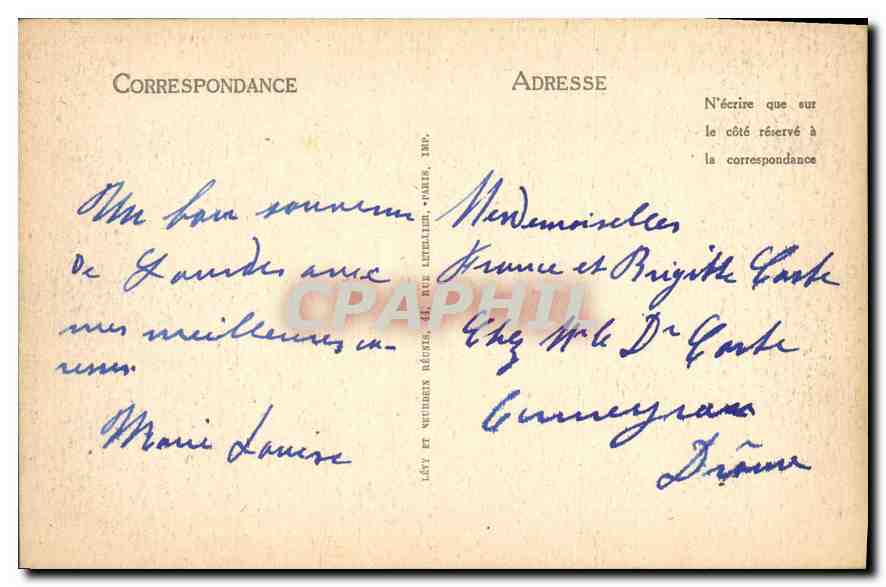 CORRESPONDANCE
Un bon souvenir
de Lourdes avec
mes meilleures ca-
resses.
Marie Louise
LÉVY ET NEURDEIN RÉUNIS, 44, RUE LETELLIER, PARIS, IMP.
ADRESSE
N'écrire que sur
le côté réservé à
la correspondance
Mesdemoiselles
France et Brigitte Coste
Chez Mr le Dr Coste
Drôme
CPAPHIL